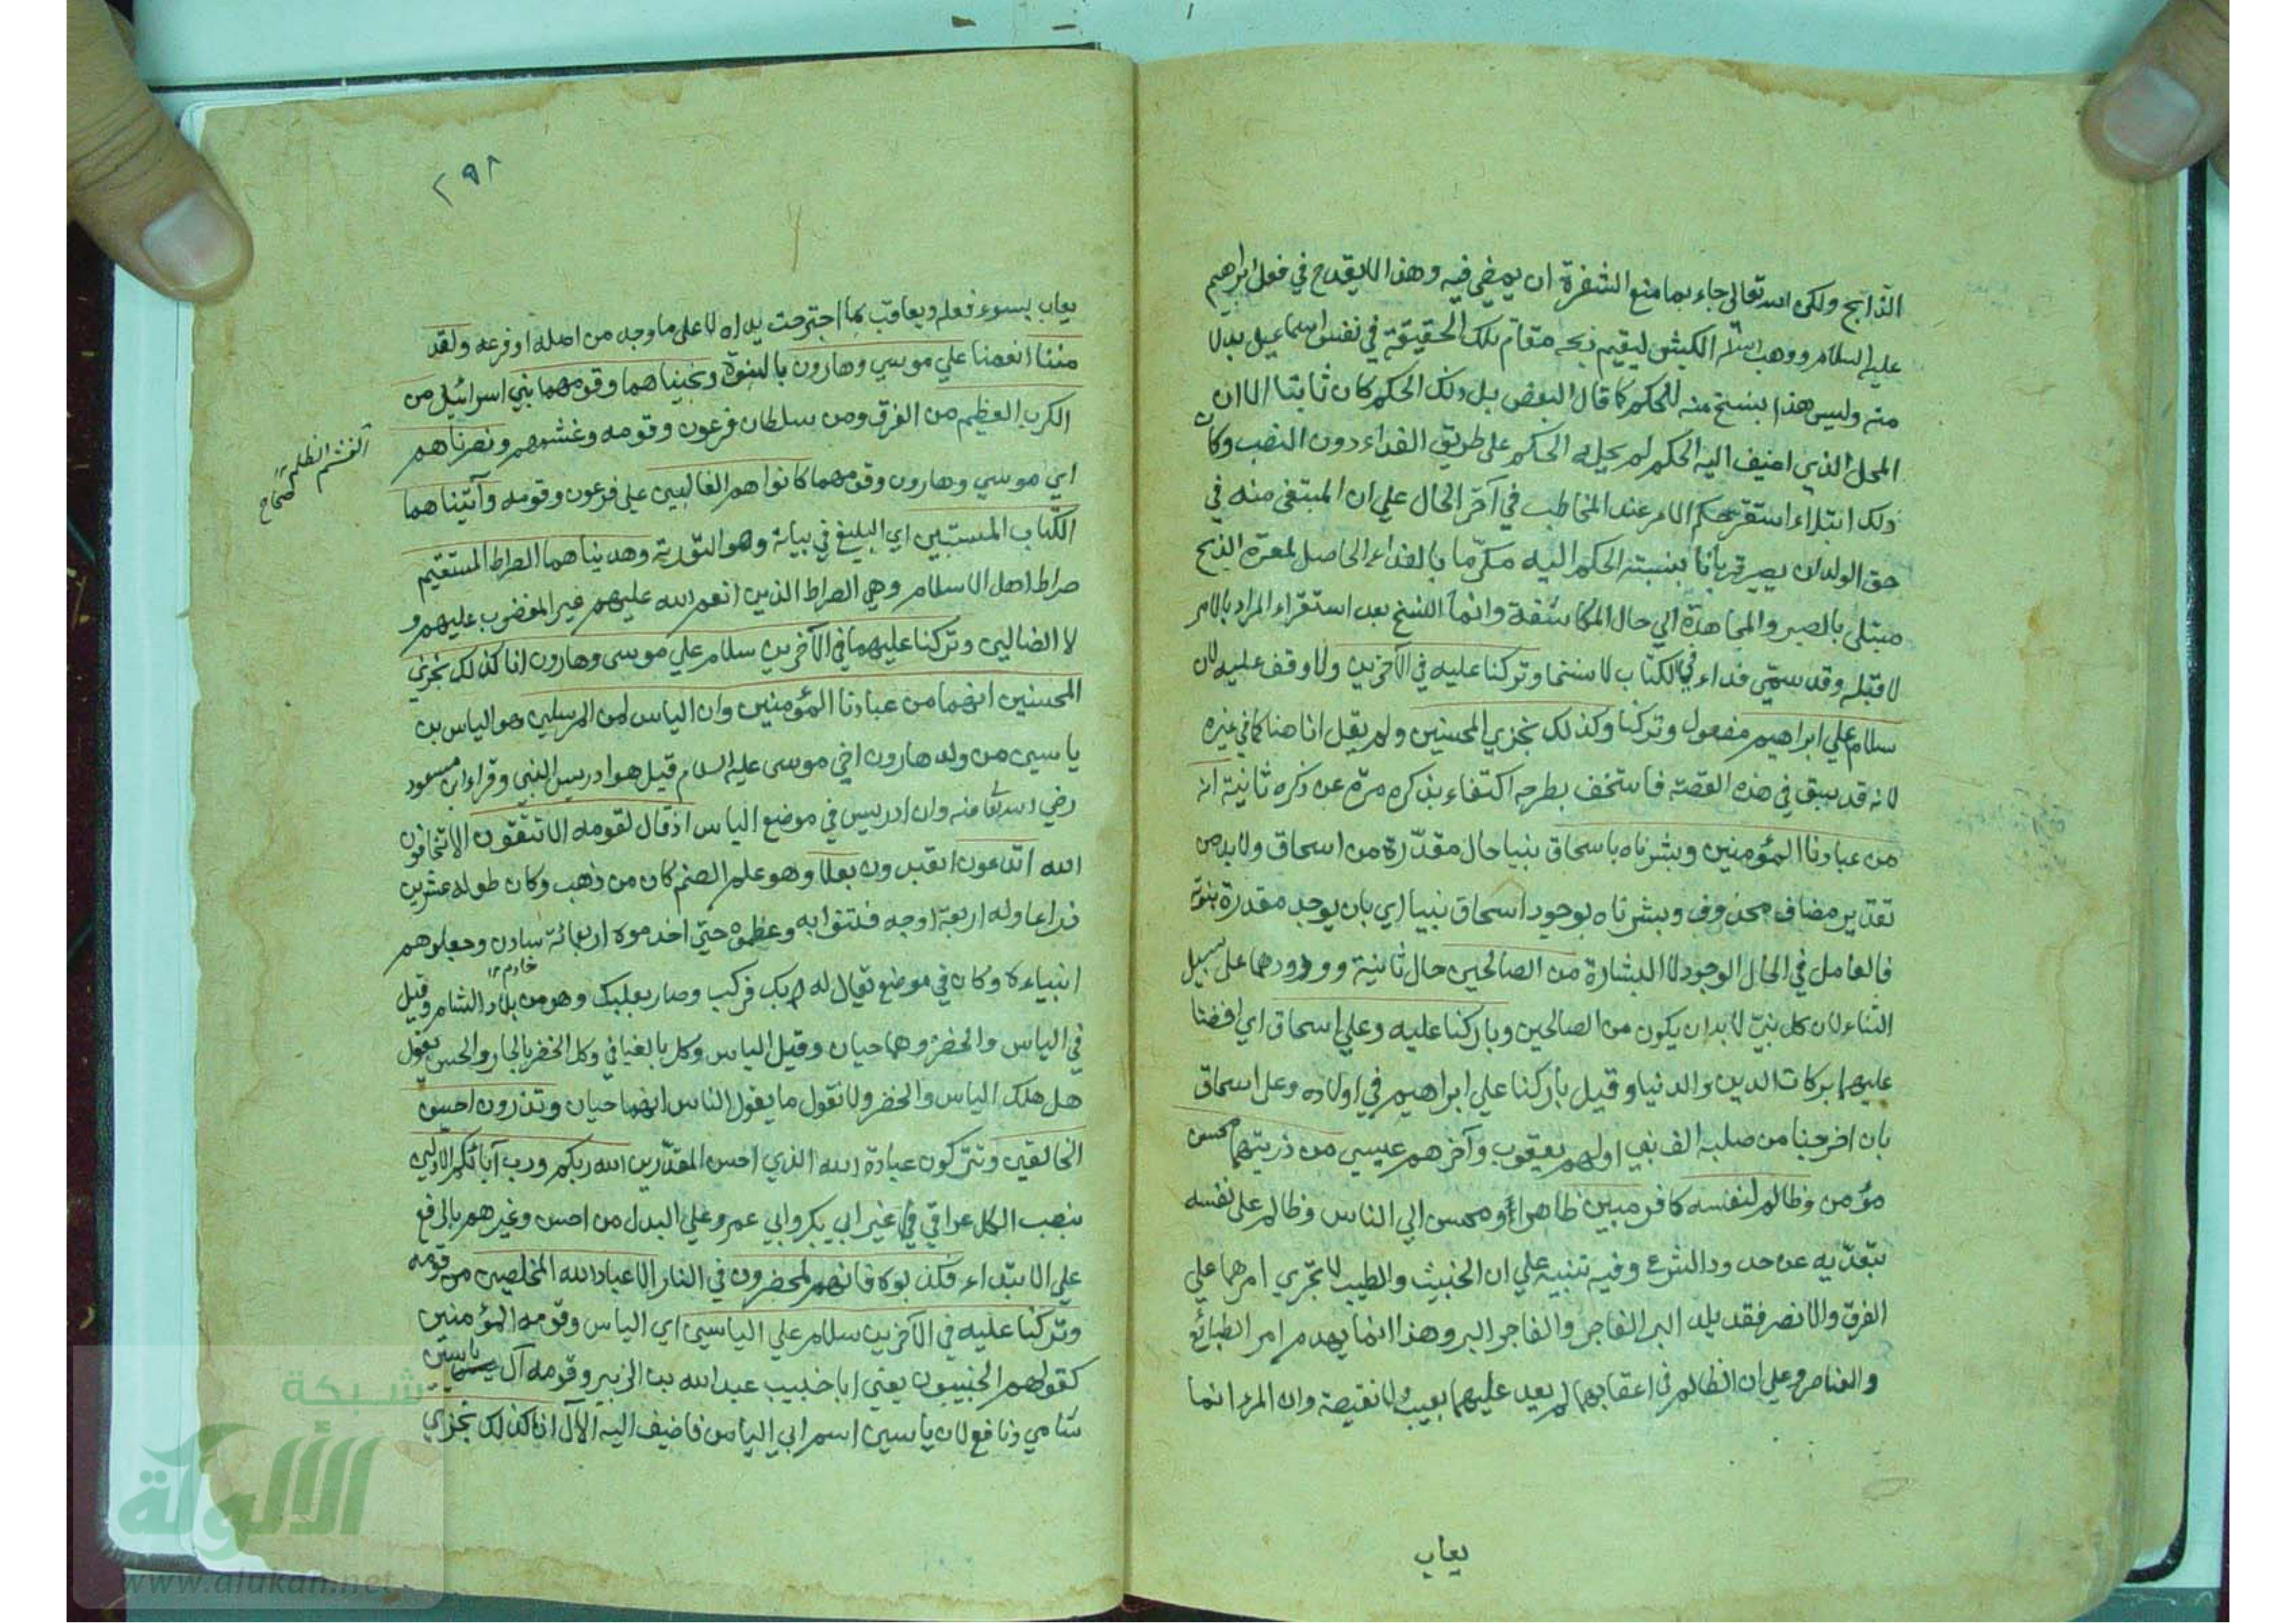 الذابح ولكن الله تعالى جاء بما منع الشفرة ان يمضي فيه وهذا لا يقدح في فعل ابراهيم
عليه السلام ووهب الله الكبش ليقيم ذبحه مقام تلك الحقيقة في نفس اسماعيل بدلا
منه وليس هذا بنسخ منه للحكم كما قال البعض بل ذلك الحكم كان ثابتا الا ان
المحل الذي اضيف اليه الحكم لم يحله الحكم على طريق الفداء دون النصب وكان
ذلك ابتلاء استقر حكم الامر عند المخاطب في آخر الحال علي ان المبتغى منه في
حق الولد ان يصير قربانا بنسبته الحكم اليه مكرما بالفداء الحاصل لمعرة الذبح
مبتلى بالصبر والمجاهدة الي حال المكاشفة وانما النسخ بعد استقراء المراد بالامر
لا قبله وقد سمّي فداء في الكتاب لا نسخا وتركنا عليه في الآخرين ولا وقف عليه لان
سلام علي ابراهيم مفعول وتركنا وكذلك نجزي المحسنين ولم يقل انا هنا كما في غيره
لانه قد سبق في هذه القصة فاستخف بطرحه اكتفاء بذكره مرة عن ذكره ثانية انه
من عبادنا المؤمنين وبشرناه باسحاق نبيا حال مقدّرة من اسحاق ولا بد من
تقدير مضاف محذوف وبشرناه بوجود اسحاق نبيا اي بان يوجد مقدرة نبوته
فالعامل في الحال الوجود لا البشارة من الصالحين حال ثانية وورودها على سبيل
الثناء لان كل نبيّ لا بد ان يكون من الصالحين وباركنا عليه وعلي اسحاق اي افضنا
عليهما بركات الدين والدنيا وقيل باركنا علي ابراهيم في اولاده وعلى اسحاق
بان اخرجنا من صلبه الف نبي اولهم يعقوب وآخرهم عيسي من ذريتهما محسن
مؤمن وظالم لنفسه كافر مبين ظاهر او محسن الي الناس وظالم على نفسه
بتعدّيه عن حدود الشرع وفيه تنبيه علي ان الخبيث والطيب لا تجري امرهما علي
العرق والعنصر فقد يلد البر الفاجر والفاجر البر وهذا انما يهدم امر الطبائع
والعناصر وعلي ان الظالم في اعقابهما لم يعد عليهما بعيب ولا نقيصة وان المرء انما
يعاب
٢٩٨
يعاب بسوء فعله ويعاقب بما اجترحت يداه لا على ما وجد من اصله او فرعه ولقد
مننا انعمنا علي موسي وهارون بالنبوة ونجيناهما وقومهما بني اسرائيل من
الكرب العظيم من الغرق ومن سلطان فرعون وقومه وغشمهم ونصرناهم
الغشم الظلم ١٢ صحاح
اي موسي وهارون وقومهما كانوا هم الغالبين علي فرعون وقومه وآتيناهما
الكتاب المستبين اي البليغ في بيانه وهو التورية وهديناهما الصراط المستقيم
صراط اهل الاسلام وهي الصراط الذين انعم الله عليهم غير المغضوب عليهم و
لا الضالين وتركنا عليهما في الآخرين سلام علي موسى وهارون انا كذلك نجزي
المحسنين انهما من عبادنا المؤمنين وان الياس لمن المرسلين هو الياس بن
ياسين من ولد هارون اخي موسى عليه السلام قيل هو ادريس النبي وقراء ابن مسعود
رضي الله تعا عنه وان ادريس في موضع الياس اذ قال لقومه الا تتقون الا تخافون
الله اتدعون اتعبدون بعلا وهو علم الصنم كان من ذهب وكان طوله عشرين
ذراعا وله اربعة اوجه فتنوا به وعظموه حتي اخدموه اربعمائة سادن وجعلوهم
خادم ١٢
انبياءه وكان في موضع يقال له بك فركب وصار بعلبك وهو من بلاد الشام وقيل
في الياس والخضر وهما حيان وقيل الياس وكل بالفيافي وكل الخضر بالبحار والحسن يقول
هل هلك الياس والخضر ولا نقول ما يقول الناس انهما حيان وتذرون احسن
الخالقين وتتركون عبادة الله الذي احسن المقدرين الله ربكم ورب آبائكم الاولين
بنصب الكل عراقي غير ابي بكر وابي عمرو علي البدل من احسن وغيرهم بالرفع
علي الابتداء فكذبوه فانهم لمحضرون في النار الا عباد الله المخلصين من قومه
وتركنا عليه في الآخرين سلام علي الياسين اي الياس وقومه المؤمنين
كقولهم الخبيبون يعني ابا خبيب عبد الله بن الزبير وقومه آل ياسين
شامي ونافع لان ياسين اسم ابي الياس فاضيف اليه الآل انا كذلك نجزي
شبكة
الألوكة
www.alukah.net